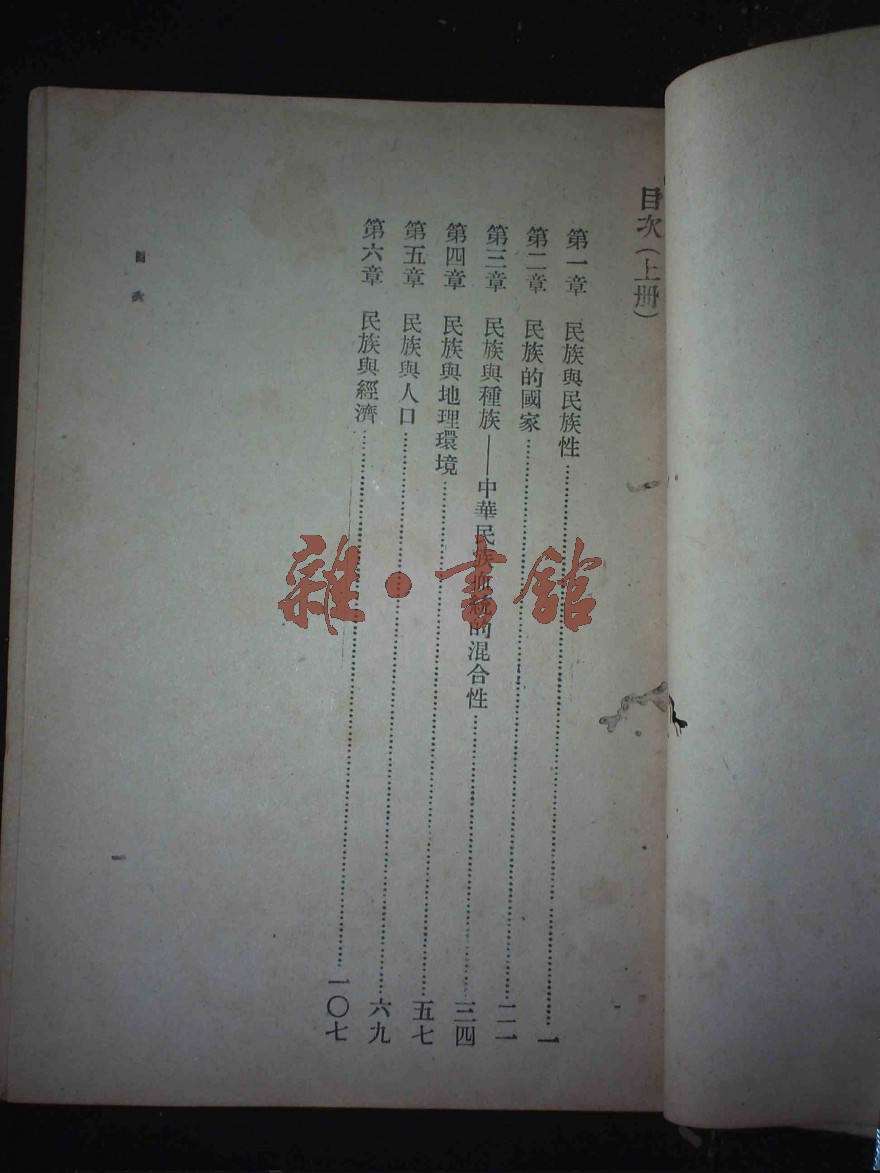 目次(上册)
第一章 民族與民族性……一
第二章 民族的國家……二一
第三章 民族與種族——中華民族血統的混合性……三四
第四章 民族與地理環境……五七
第五章 民族與人口……六九
第六章 民族與經濟……一〇七
目次
一
雜·書館